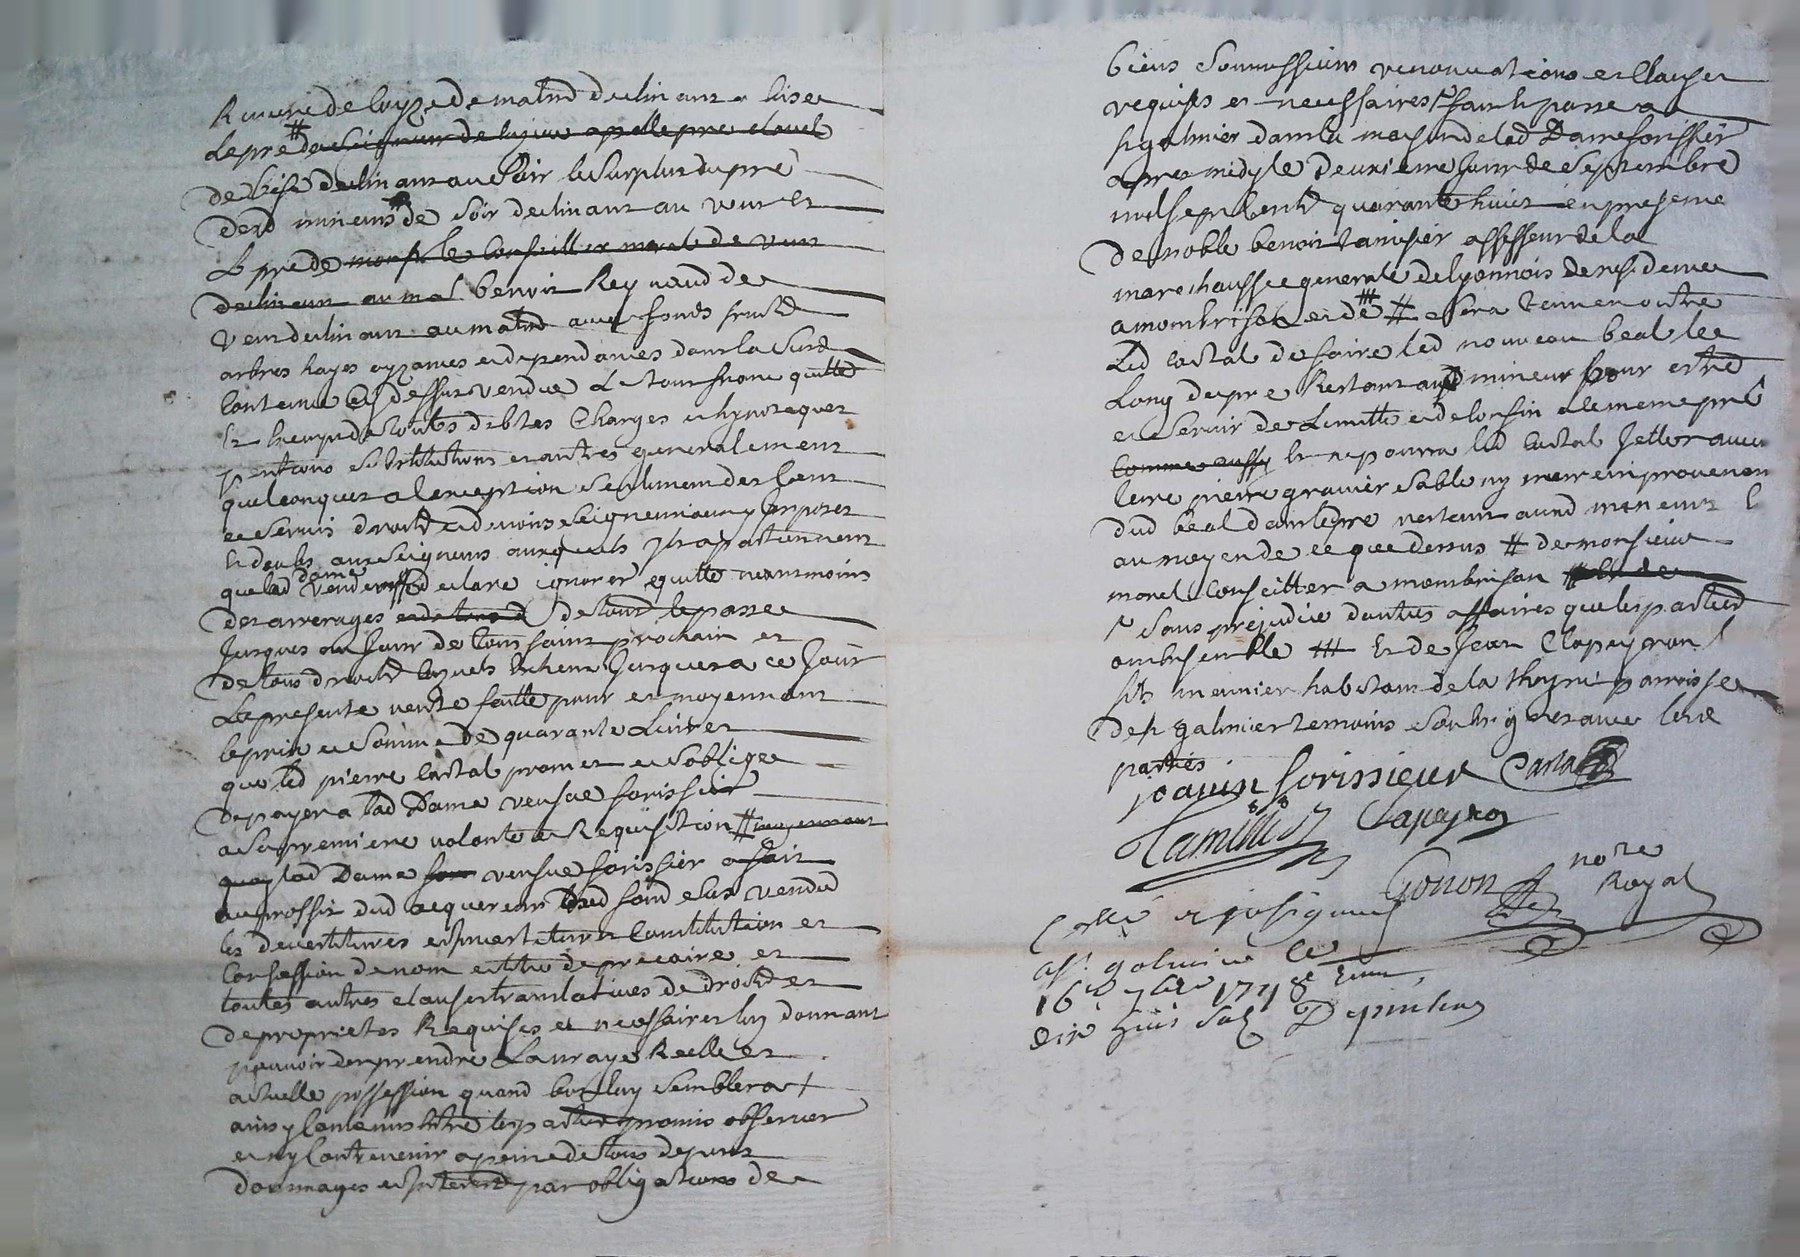 Riviere de loyze de matin declinant a bise
le pré # du Seigneur de lujow apellé pre clavel
de bise declinant au Soir le Surplus du pré
desd mineurs # de Soir declinant au vent Et
Le pre de monsr le Conseiller morel de vent
declinant au mat benoit Reynaud de
vent declinant au matin avec fonds fruits
arbres hayes ayzances et dependances dans la Susd
Contenue cy dessus vendue Le tout franc quitte
Et Exempt de toutes debtes Charges et hypoteques
pentions substitutions et autres generalement
quelconques a l'exception seulement des Cens
et servis droits et devoirs seigneuriaux y Imposez
Et deubs aux Seigneurs auxquels Ils apartiennent
que lad dame declare ignorer quitte neantmoins
des arrerages de tout le passe
Jusques au Jour de toussaint prochain et
de tous droits lesquels Echeus Jusques a ce Jour
La presente vente faitte pour et moyennant
le prix et somme de quarante Livres
que led pierre Castal promet et s'oblige
de payer a lad Dame veufve forissier
a sa premiere volonté et Requisition # moyennant
quoy lad Dame veufve forissier a fait
au proffit dud acquereur dud fond cy dessus vendu
les devestitures et Investitures Constitution et
Confession de nom et titre de precaire et
toutes autres clauses translatives de droits et
de proprietes Requises et necessaires luy donnant
pouvoir d'en prendre La vraye Reelle et
actuelle possession quand bon luy semblera
ainsy Convenus Entre les parties promis observer
et n'y Contrevenir a peine de tous depens
dommages et Interests par obligations de
biens Soumissions renonciations et Clauses
requises et necessaires fait et passe a
st galmier dans la maison de lad Dame forissier
apres midy le deuxieme Jour de Septembre
mil sept Cents quarante huict en presence
de noble benoit tamisier assesseur de la
marechaussée generale de lyonnois de residence
a mombrison et de # # sera tenu en outre
Led Castal de faire led nouveau beal le
Long du pre Restant aud mineur pour estre
et Servir de Limitte et de Confin a le meme pré
Comme aussy Et ne pourra led Castal Jetter aucun
terre pierre gravier sable ny marrein provenan
dud beal dans le pre restant aud mineur Et
au moyen de ce que dessus # de monsieur
morel Conseiller a mombrison
sans prejudice d'autres affaires que les parties
ont Ensemble # Et de Jean Clapeyron
fils meunier habitant de la thoyrie parroisse
de st galmier temoins soubsignes avec les
parties
jo anin forissieur Castal
Tamisier Clapeyron
Gonon nore Royal
Collé et Insigné
a st galmier Ce
16e 7bre 1748
dix huis sols Depinhac